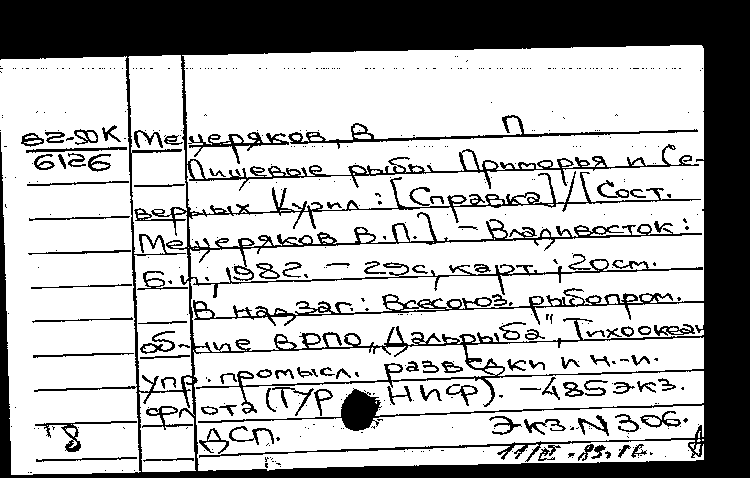 82-50К Мещеряков, В П
6126
Пищевые рыбы Приморья и Се-
верных Курил : [Справка] / [Сост.
Мещеряков В.П.]. – Владивосток :
Б.и., 1982. – 29с, карт. ; 20см.
В надзаг.: Всесоюз. рыбопром.
об-ние ВРПО „Дальрыба", Тихоокеан
упр. промысл. разведки и н.-и.
флота (ТУР НИФ). – 485 экз.
ДСП. Экз. N 306.
8